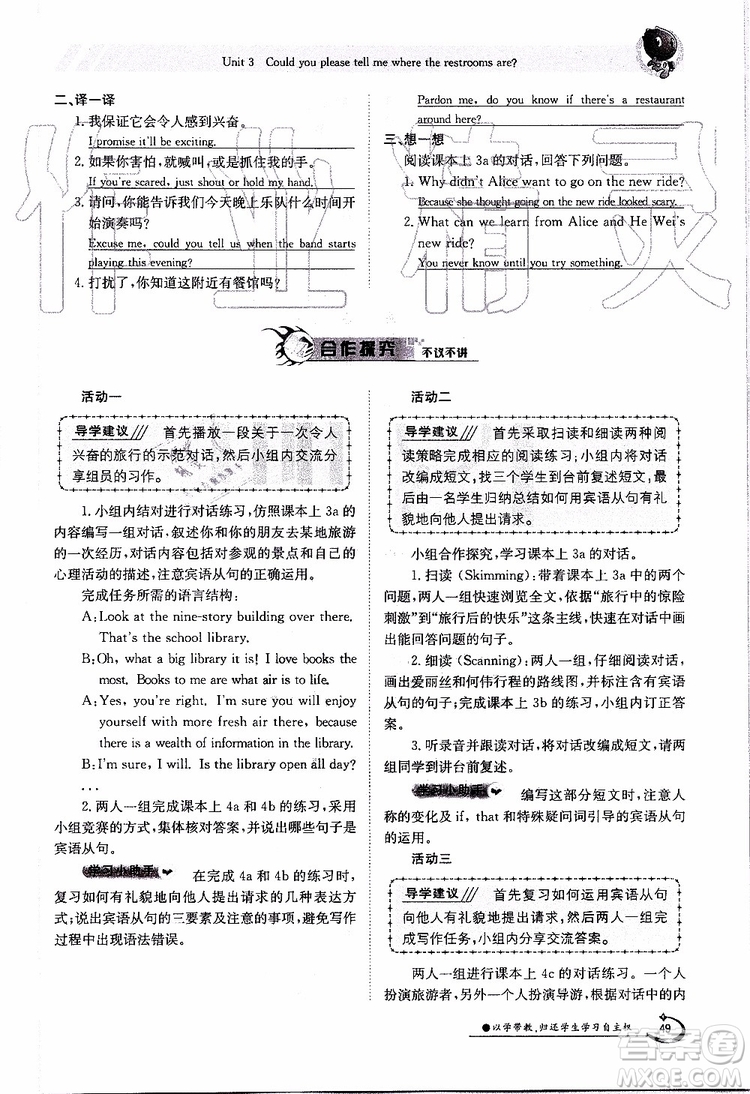 Unit 3 Could you please tell me where the restrooms are?
二、译一译
1. 我保证它会令人感到兴奋。
I promise it'll be exciting.
2. 如果你害怕，就喊叫或是抓住我的手。
If you're scared, just shout or hold my hand.
3. 请问，你能告诉我们今天晚上乐队什么时间开
始演奏吗？
Excuse me, could you tell us when the band starts
playing this evening?
4. 打扰了，你知道这附近有餐馆吗？
Pardon me, do you know if there's a restaurant
around here?
三、想一想
阅读课本上 3a 的对话，回答下列问题。
1. Why didn't Alice want to go on the new ride?
Because she thought going on the new ride looked scary.
2. What can we learn from Alice and He Wei's
new ride?
You never know until you try something.
合作探究 不议不讲
活动一
导学建议 首先播放一段关于一次令人
兴奋的旅行的示范对话，然后小组内交流分
享组员的习作。
1. 小组内结对进行对话练习，仿照课本上 3a 的
内容编写一组对话，叙述你和你的朋友去某地旅游
的一次经历，对话中要包括对参观的景点和自己的
心理活动的描述，注意宾语从句的正确运用。
完成任务所需的语言结构：
A: Look at the nine-story building over there.
That's the school library.
B: Oh, what a big library it is! I love books the
most. Books to me are what air is to life.
A: Yes, you're right. I'm sure you will enjoy
yourself with more fresh air there, because
there is a wealth of information in the library.
B: I'm sure, I will. Is the library open all day?
...
2. 两人一组完成课本上 4a 和 4b 的练习，采用
小组竞赛的方式，集体核对答案，并画出哪些句子是
宾语从句。
学习小助手 在完成 4a 和 4b 的练习时，
复习如何有礼貌地向他人提出请求的几种表达方
式，说出宾语从句的三要素及注意的事项，避免写作
过程中出现语法错误。
活动二
导学建议 首先采取扫读和细读两种阅
读策略完成相应的阅读练习；小组内将对话
改编成短文，找三个学生到台前复述短文，最
后由一名学生归纳总结如何用宾语从句有礼
貌地向他人提出请求。
小组合作探究，学习课本上 3a 的对话。
1. 扫读（Skimming）：带着课本上 3a 中的两个
问题，两人一组快速浏览全文，根据“旅行中的惊险
刺激”到“旅行后的快乐”这条主线，快速在对话中画
出能回答问题的句子。
2. 细读（Scanning）：两人一组，仔细阅读对话，
画出爱丽丝和何伟行程的路线图，并画出含有宾语
从句的句子；完成课本上 3b 的练习，小组内订正答
案。
3. 听录音并跟读对话，将对话改编成短文，请两
组同学到讲台前复述。
学习小助手 编写这部分短文时，注意人
称的变化及 if, that 和特殊疑问词引导的宾语从句
的运用。
活动三
导学建议 首先复习如何运用宾语从句
向他人有礼貌地提出请求，然后两人一组完
成写作任务，小组内分享交流答案。
两人一组进行课本上 4c 的对话练习。一个人
扮演旅游者，另外一个人扮演导游，根据对话中的内
●以学带教，归还学生学习自主权
49
作业精灵
答案圈
MXQE.COM